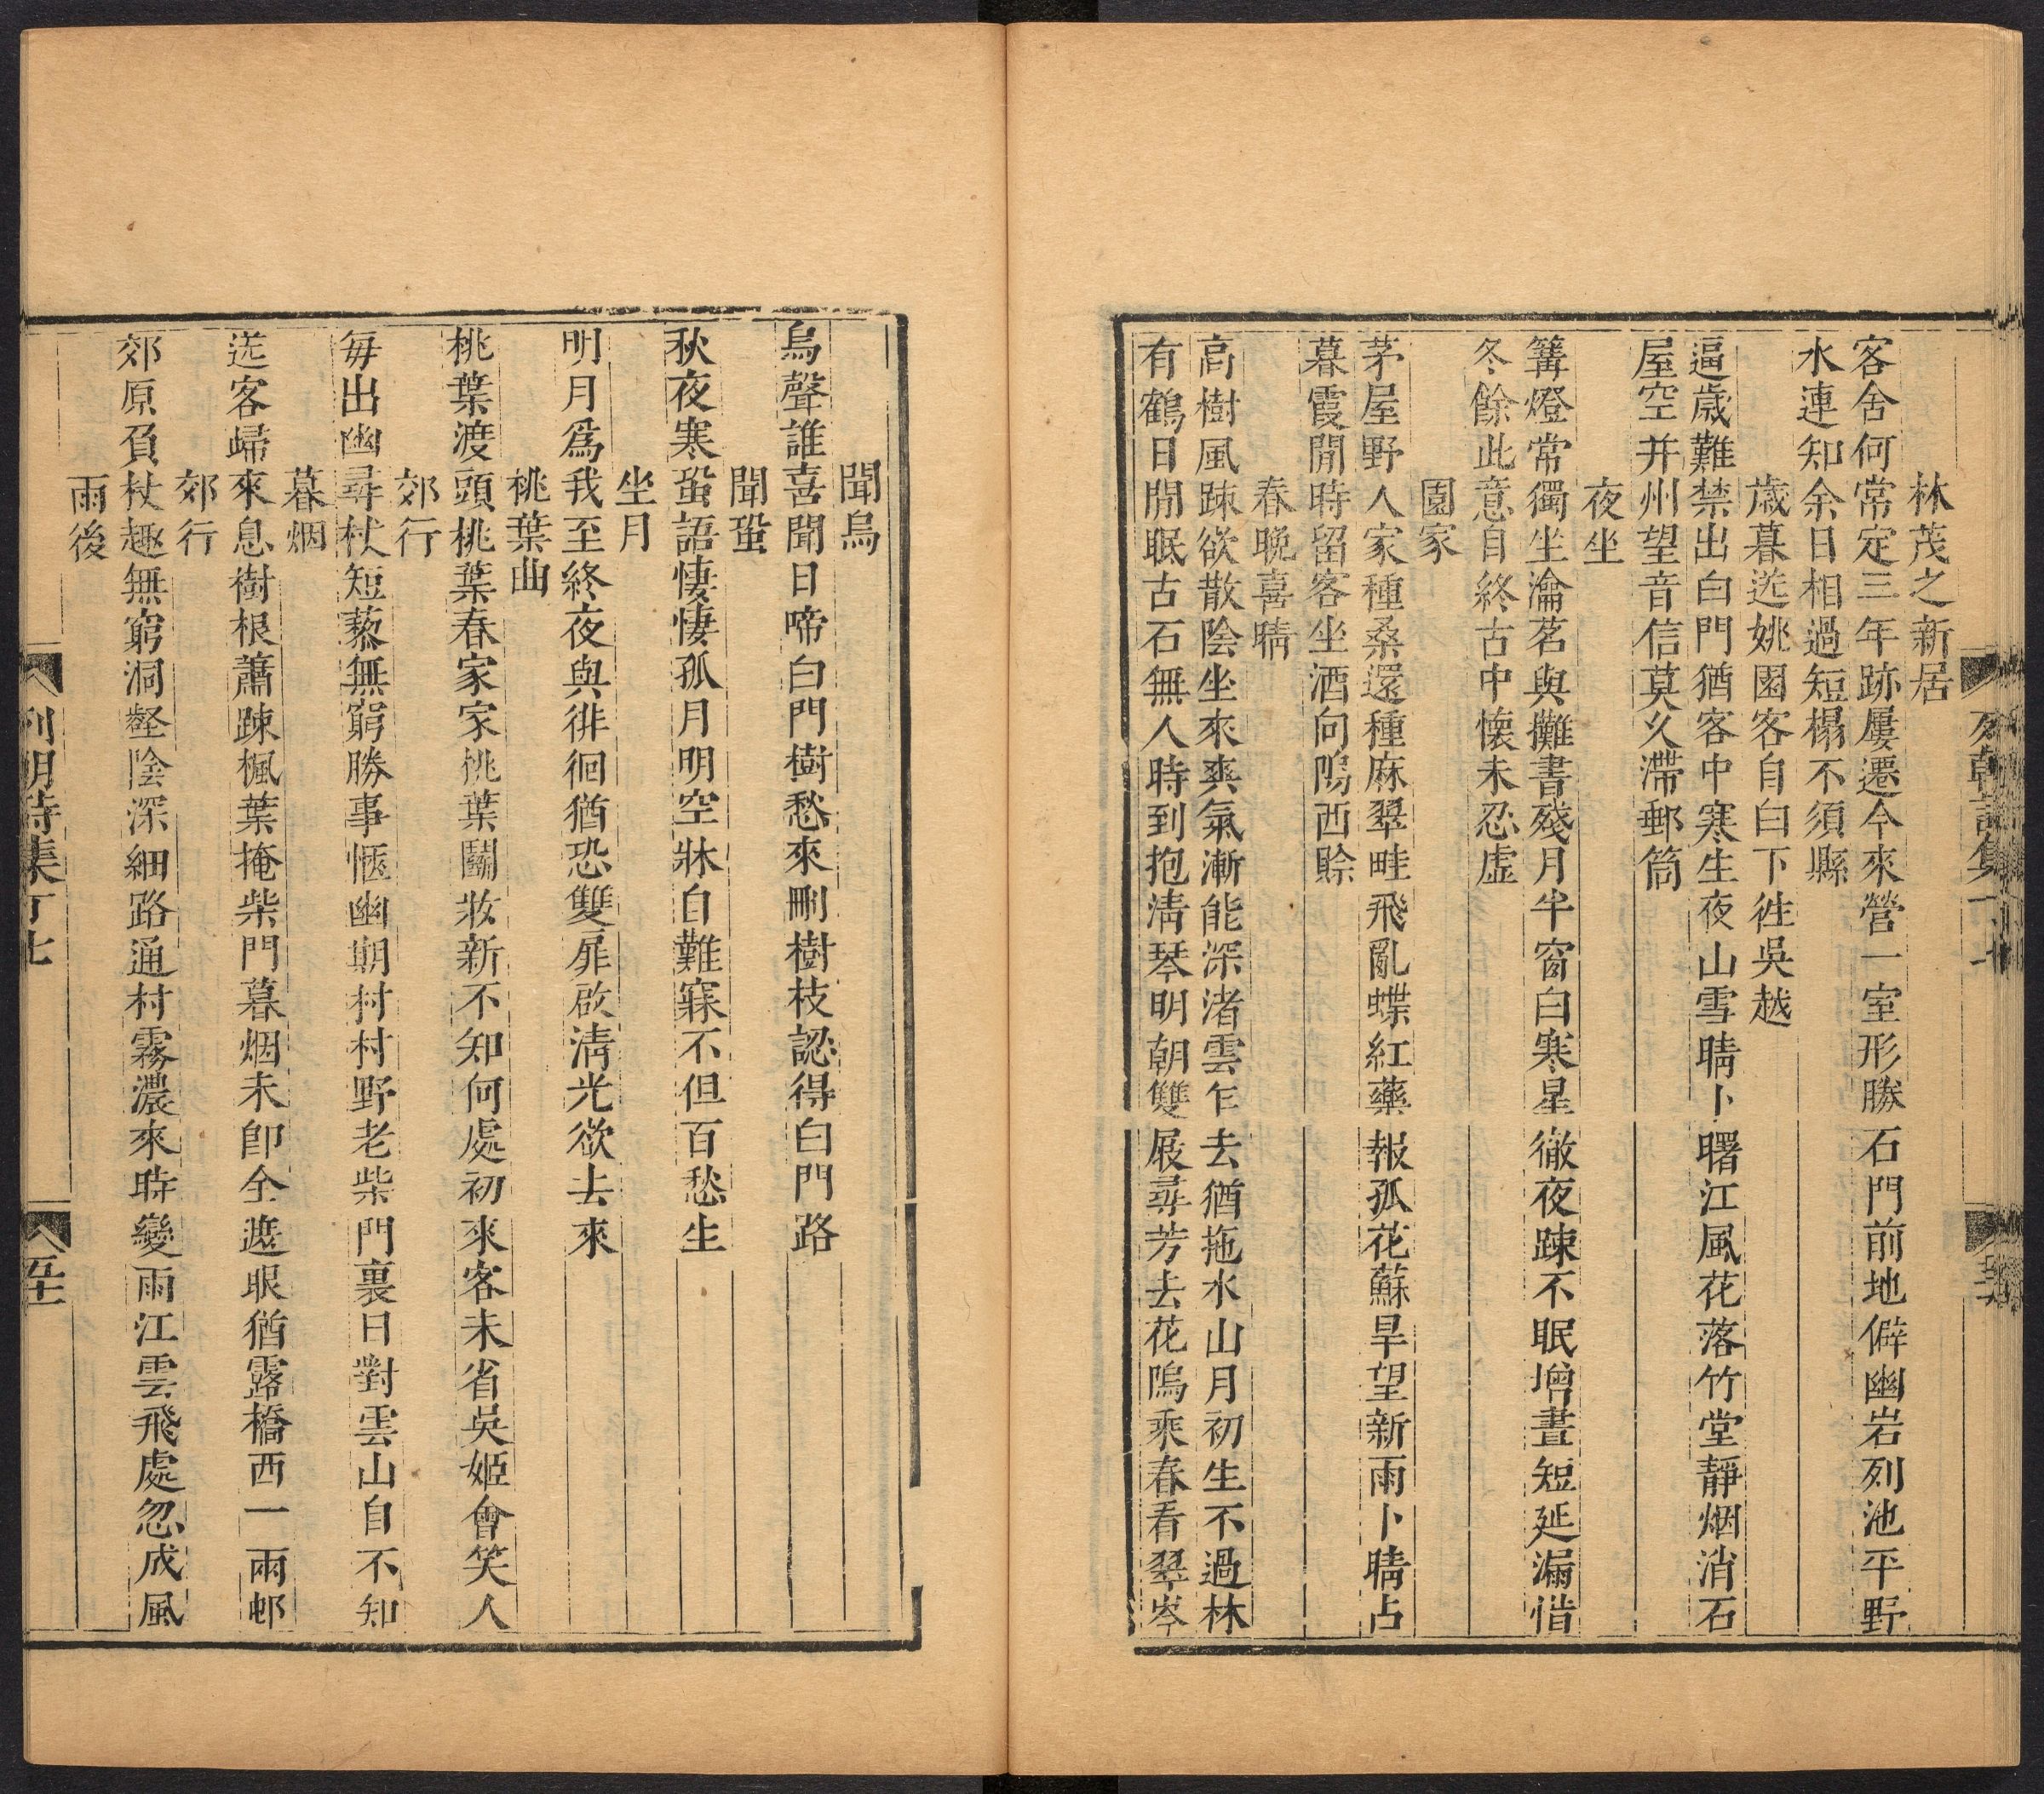 列朝詩集丁七
林茂之新居
客舍何常定三年跡屢遷今來營一室形勝石門前地僻幽岩列池平野
水連知余日相過短榻不須縣
歲暮送姚園客自白下徃吳越
逼歲難禁出白門猶客中寒生夜山雪晴卜曙江風花落竹堂靜烟消石
屋空并州望音信莫久滯郵筒
夜坐
篝燈常獨坐瀹茗與攤書殘月半窗白寒星徹夜踈不眠增晝短延漏惜
冬餘此意自終古中懷未忍虛
園家
茅屋野人家種桑還種麻翠畦飛亂蝶紅藥報孤花蘇旱望新雨卜晴占
暮霞閒時留客坐酒向隖西賒
春晚喜晴
高樹風踈欲散陰坐來爽氣漸能深渚雲乍去猶拖水山月初生不過林
有鶴日閒眠古石無人時到抱淸琴明朝雙屐尋芳去花隖乘春看翠岑
聞烏
烏聲誰喜聞日啼白門樹愁來刪樹枝認得白門路
聞蛩
秋夜寒蛩語悽悽孤月明空牀自難寐不但百愁生
坐月
明月爲我至終夜與徘徊猶恐雙扉啟淸光欲去來
桃葉曲
桃葉渡頭桃葉春家家桃葉鬬妝新不知何處初來客未省吳姬會笑人
郊行
每出幽尋杖短藜無窮勝事愜幽期村村野老柴門裏日對雲山自不知
暮烟
送客歸來息樹根蕭踈楓葉掩柴門暮烟未卽全遮眼猶露橋西一兩邨
郊行
郊原負杖趣無窮洞壑陰深細路通村霧濃來時變雨江雲飛處忽成風
雨後
列朝詩集丁七